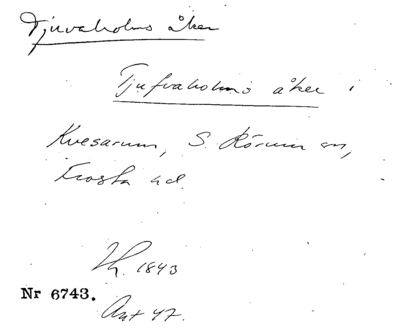 Tjuvaholms åker
Tjufvaholms åker i
Kvesarum, S. Rörum sn,
Frosta hd.
Lh. 1843
Nr 6743.
Akt 47.